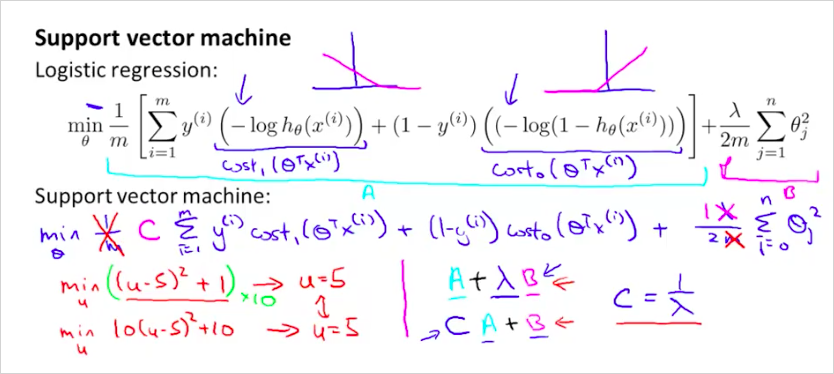 Support vector machine
Logistic regression:
min_θ 1/m [ ∑_{i=1}^{m} y^{(i)} (−log h_θ(x^{(i)})) + (1 − y^{(i)}) ((−log(1 − h_θ(x^{(i)}))) ] + λ/2m ∑_{j=1}^{n} θ_j^2
cost_1(θ^T x^{(i)}) cost_0(θ^T x^{(i)})
A B
Support vector machine:
min_θ 1/m C ∑_{i=1}^{m} y^{(i)} cost_1(θ^T x^{(i)}) + (1−y^{(i)}) cost_0(θ^T x^{(i)}) + 1 λ/2m ∑_{i=0}^{n} θ_j^2
min_u ((u-5)^2 + 1) ×10 → u=5 A + λ B ← C = 1/λ
min_u 10(u-5)^2+10 → u=5 → C A + B ←